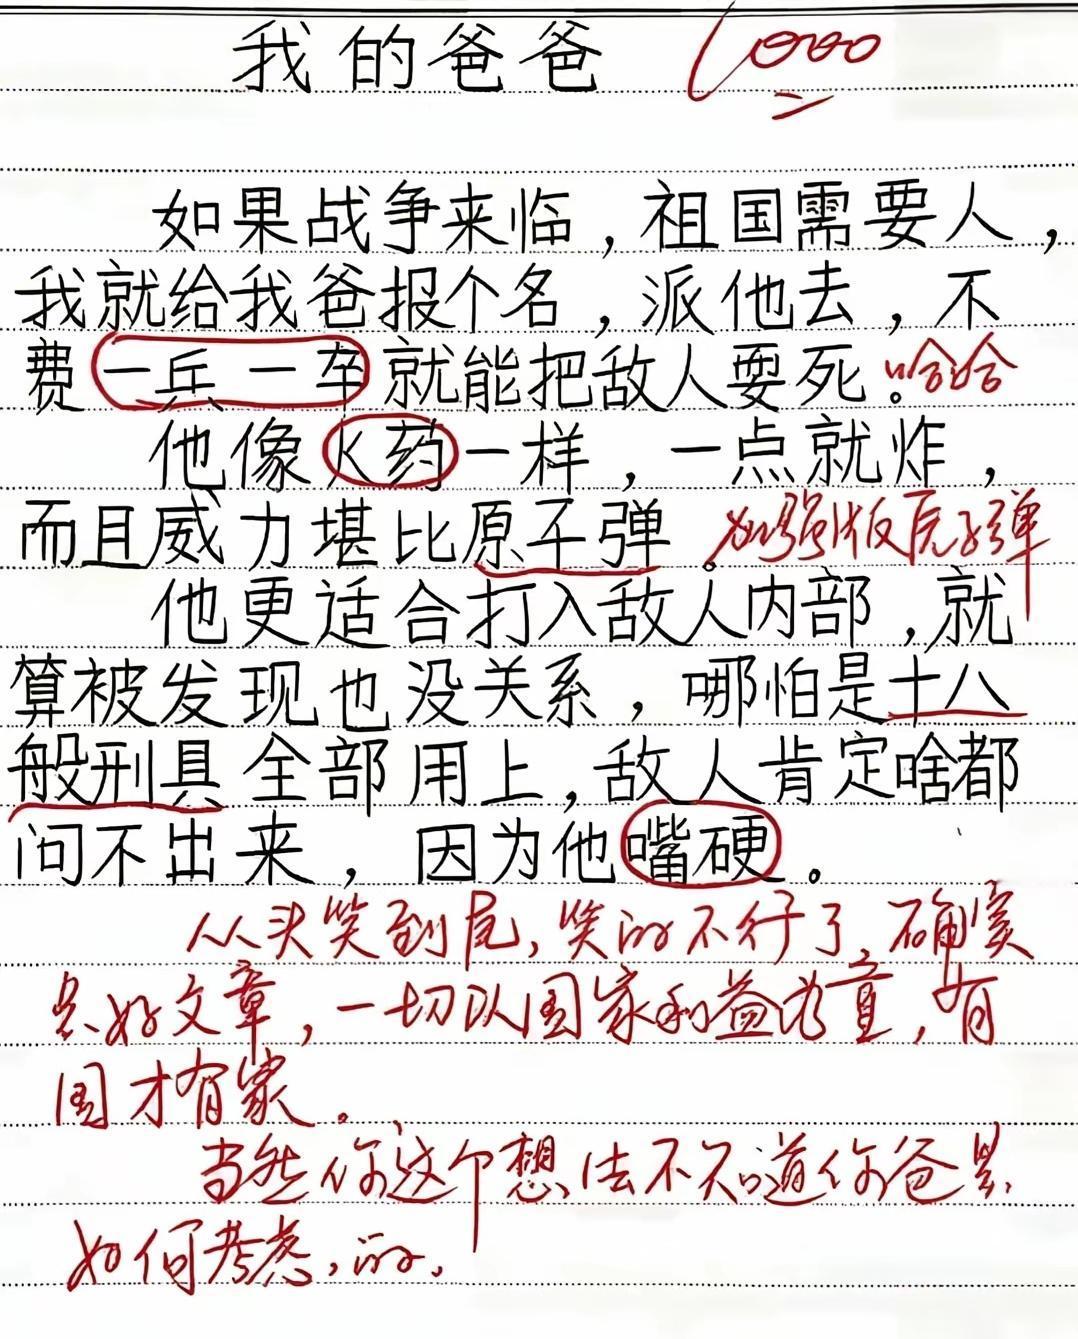 我的爸爸 10000
如果战争来临，祖国需要人，
我就给我爸报个名，派他去，不
费一兵一卒就能把敌人耍死。哈哈
他像K药一样，一点就炸，
而且威力堪比原子弹。加强版原子弹
他更适合打入敌人内部，就
算被发现也没关系，哪怕是十八
般刑具全部用上，敌人肯定啥都
问不出来，因为他嘴硬。
从头笑到尾，笑的不行了，确实
是好文章，一切以国家利益为重，有
国才有家。
当然你这个想法不知道你爸是
如何考虑的。